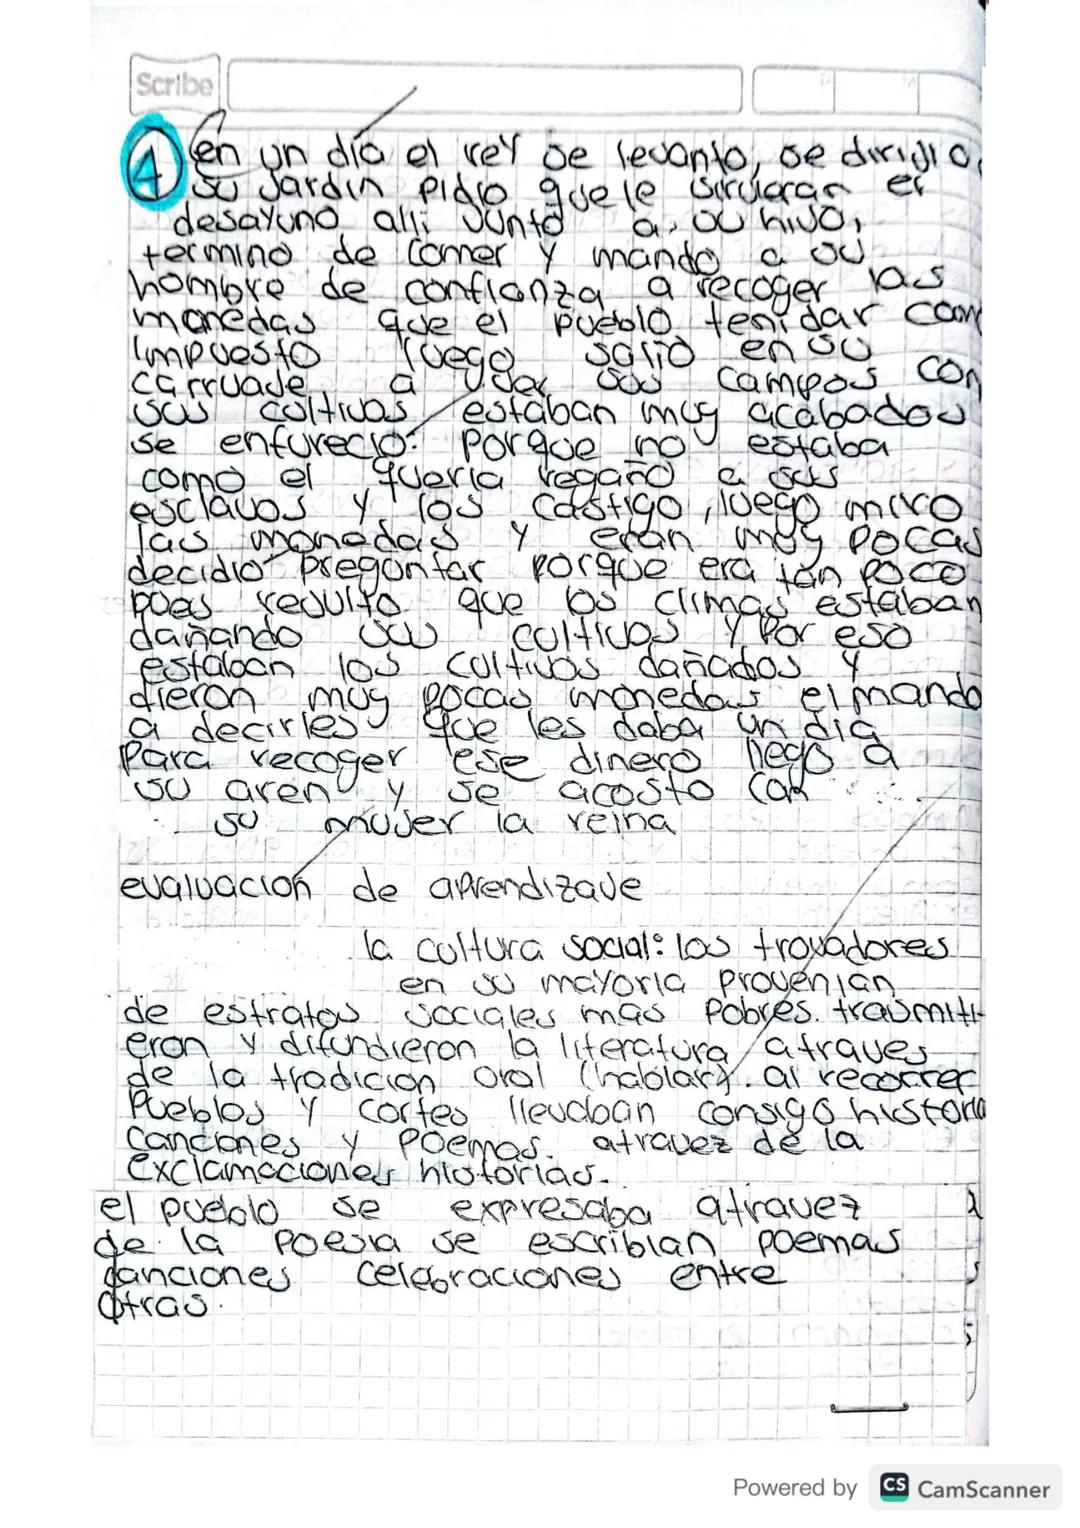 Scribe
1 en un día el rey se levanto, se dirijio a
su Jardin pidio que le sirvieran el
desayuno alli junto a su hijo,
termino de comer y mando a su
hombre de confianza a recoger las
monedas que el pueblo dar com
impuesto luego salio en su
carruaje a sus campos con
sus cultivos estaban muy acabados
se enfurecio: porque no estaba
como el queria regaño a sus
esclavos y los castigo, luego miro
las monedas y eran muy pocas
decidio preguntar porque era tan poco
pues resulto que los climas estaban
dañando sus cultivos y por eso
estaban los cultivos dañados y
dieron muy pocas monedas el mando
a decirles que les daba un dia
Para recoger ese dinero llego a
su aren y se acosto con
su mujer la reina
evaluación de aprendizaje
la cultura social: los trovadores
en su mayoria provenian
de estratos sociales mas pobres. trasmiti-
eron y difundieron la literatura atraves
de la tradicion oral (hablar). al recorrer
Pueblos y cortes llevaban consigo historia
canciones y poemas. atravez de la
exclamaciones historias.
el pueblo se expresaba atravez
de la poesia se escribian poemas
canciones celebraciones entre
otras.
Powered by CS CamScanner